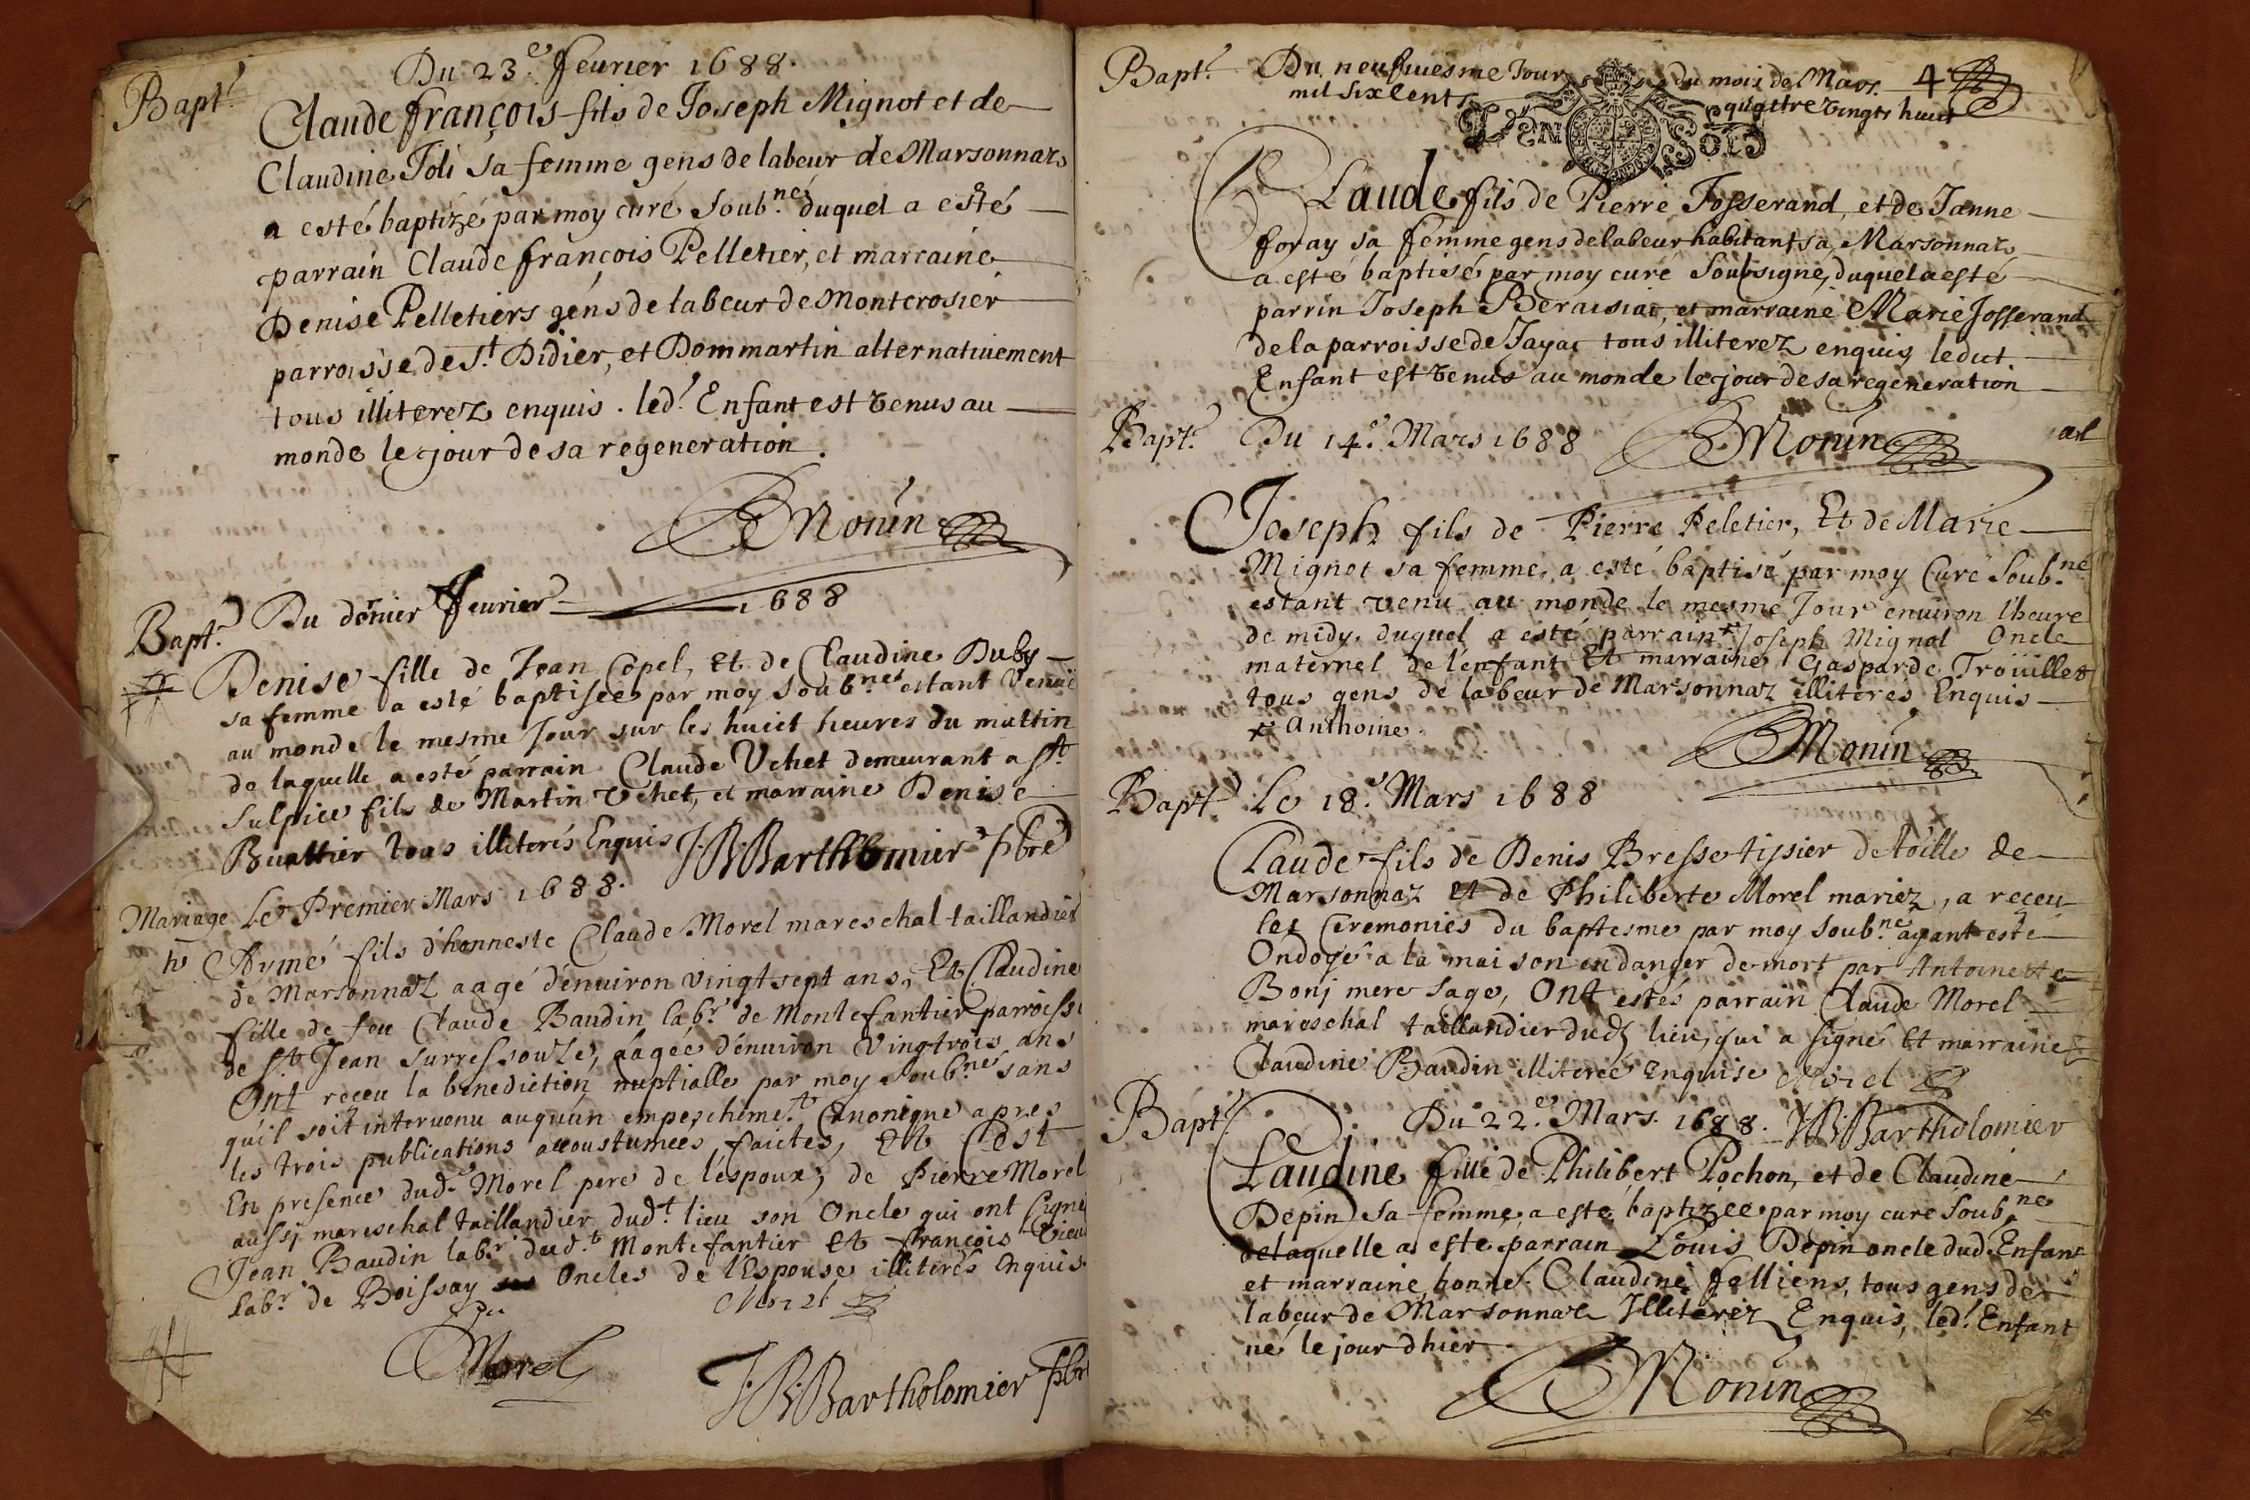 Du 23.e feurier 1688.
Bapt.
Claude françois fils de Joseph Mignot et de
Claudine Joli sa femme gens de labeur de Marsonnaz
a esté baptizé par moy curé soub.né duquel a esté
parrain Claude françois Pelletier, et marraine
Denise Pelletiers gens de labeur de Montcrosier
parroisse de S.t Didier, et Dommartin alternatiuement
tous illiterez enquis. led.t Enfant est venus au
monde le jour de sa regeneration.
Monin
Bapt.
Du dernier feurier 1688
Denise fille de Jean Copel, Et de Claudine Duby
sa femme a esté baptisée par moy soub.né estant Venue
au monde le mesme Jour sur les huict heures du mattin
de laquelle a esté parrain Claude Vchet demeurant a St.
Sulpice fils de Martin Vchet, et marraine Denise
Buattier tous illiterés Enquis J:B:Bartholomier pbre
Mariage Le Premier Mars 1688.
Aymé fils d'honneste Claude Morel mareschal taillandier
de Marsonnaz aagé denuiron vingt sept ans, Et Claudine
fille de feu Claude Baudin lab.r de Montefantier parroisse
de S.t Jean surressouze, aagée d'enuiron vingtrois ans
Ont receu la benediction nuptialle par moy soub.né sans
qu'il soit interuenu auqu'un empeschem.t Canonique apres
les trois publications accoustumées faictes, Et C'est
En presence dud. Morel pere de l'espoux, de Pierre Morel
aussj mareschal taillandier dud.t lieu son Oncle qui ont signé
Jean Baudin lab.r dud.t Montefantier Et françois
lab.r de Boissay Oncles de l'Espouse illiterés enquis.
Morel
Morel
J:B:Bartholomier pbre
Bapt. Du neufuiesme Jour du mois de Mars 4
mil six cents quattre vingts huict
DEN SOLS
Claude fils de Pierre Josserand, et de Janne
foray sa femme gens de labeur habitants a Marsonnaz
a esté baptisé par moy curé soubsigné, duquel a esté
parrin Joseph, et marraine Marie Josserand
de la parroisse de Jayac tous illiterez enquis ledict
Enfant est venus au monde le jour de sa regeneration
Bapt. Du 14.e Mars 1688 Monin
Joseph fils de Pierre Peletier, Et de Marie
Mignot sa femme, a esté baptisé par moy Curé Soub.né
estant venu au monde le mesme Jour enuiron l'heure
de midy, duquel a esté parrain + Joseph Mignot Oncle
maternel de l'enfant Et marraine Gasparde Troüillet
tous gens de labeur de Marsonnaz illiteres Enquis
+ Anthoine
Monin
Bapt. Le 18.e Mars 1688
Claude fils de Denis Bresse tissier de toille de
Marsonnaz Et de Philiberte Morel mariez, a receu
les Ceremonies du baptesme par moy soub.né ayant esté
Ondoyé a la maison en danger de mort par Antoinette
Bonj mere sage, Ont estés parrain Claude Morel
mareschal taillandier dud. lieu, qui a signé Et marraine
Claudine Baudin illiterée Enquise Morel
Bapt. Du 22.e Mars. 1688. J:B:Bartholomier
Claudine fille de Philibert Pochon, et de Claudine
Depin sa femme, a esté baptizée par moy curé Soub.né
delaquelle a esté parrain Louis Depin oncle dud. Enfant
et marraine honne. Claudine felliens, tous gens de
labeur de Marsonnaz Illiterez Enquis, led.t Enfant
né le jour d'hier
Monin